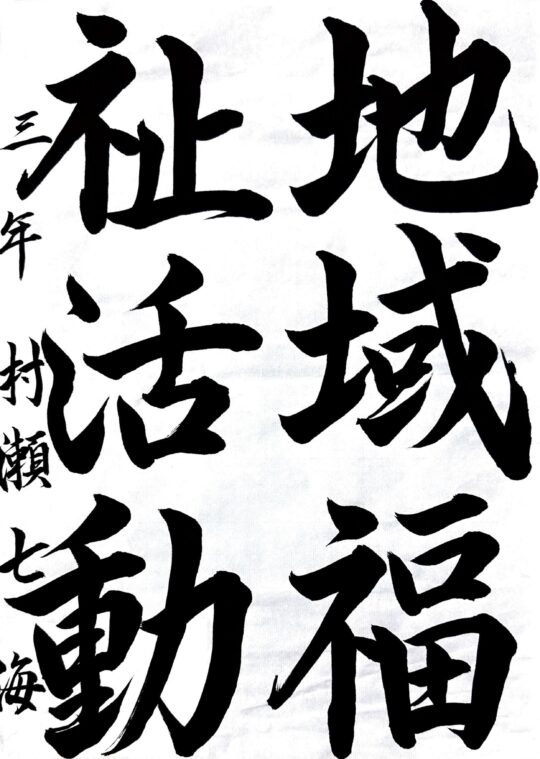 地域福
祉活動
三年 村瀬七海